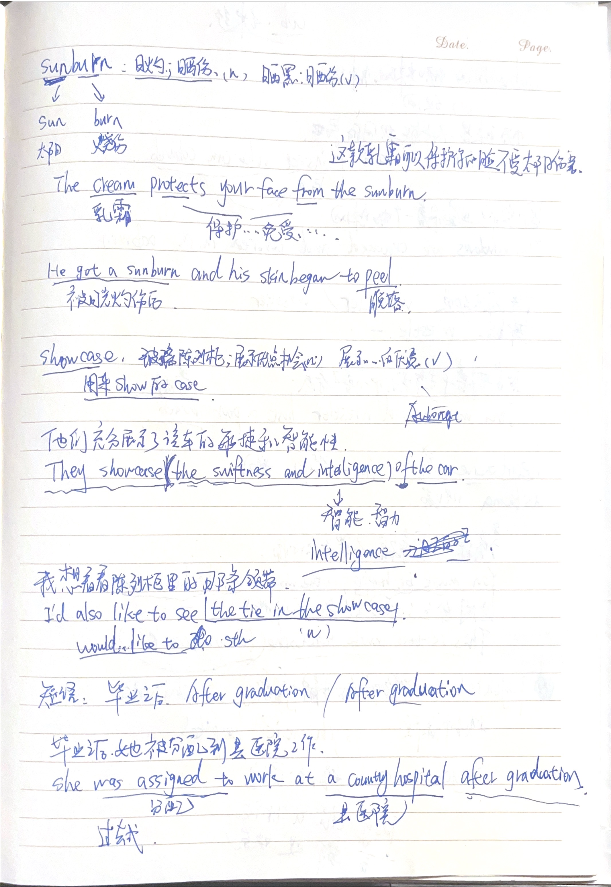 Date. Page.
sunburn : 日灼; 晒伤. (n) 晒黑; 晒伤(v)
sun burn
太阳 烧伤
这款乳霜可以保护你的脸不受太阳伤害.
The cream protects your face from the sunburn.
乳霜 保护...免受.....
He got a sunburn and his skin began to peel
被日光灼伤后 脱落.
showcase. 玻璃陈列柜; (n) 展示... (v)
用来show的case
他们充分展示了该车的敏捷和智能性.
They showcase (the swiftness and inteligence) of the car.
智能. 智力
intelligence
我想看看陈列柜里的那条领带.
I'd also like to see [the tie in the showcase].
would like to do sth (n)
短语: 毕业之后. After graduation / After graduation
毕业之后她被分配到县医院工作.
She was assigned to work at a county hospital after graduation.
分配 县医院
过去式.